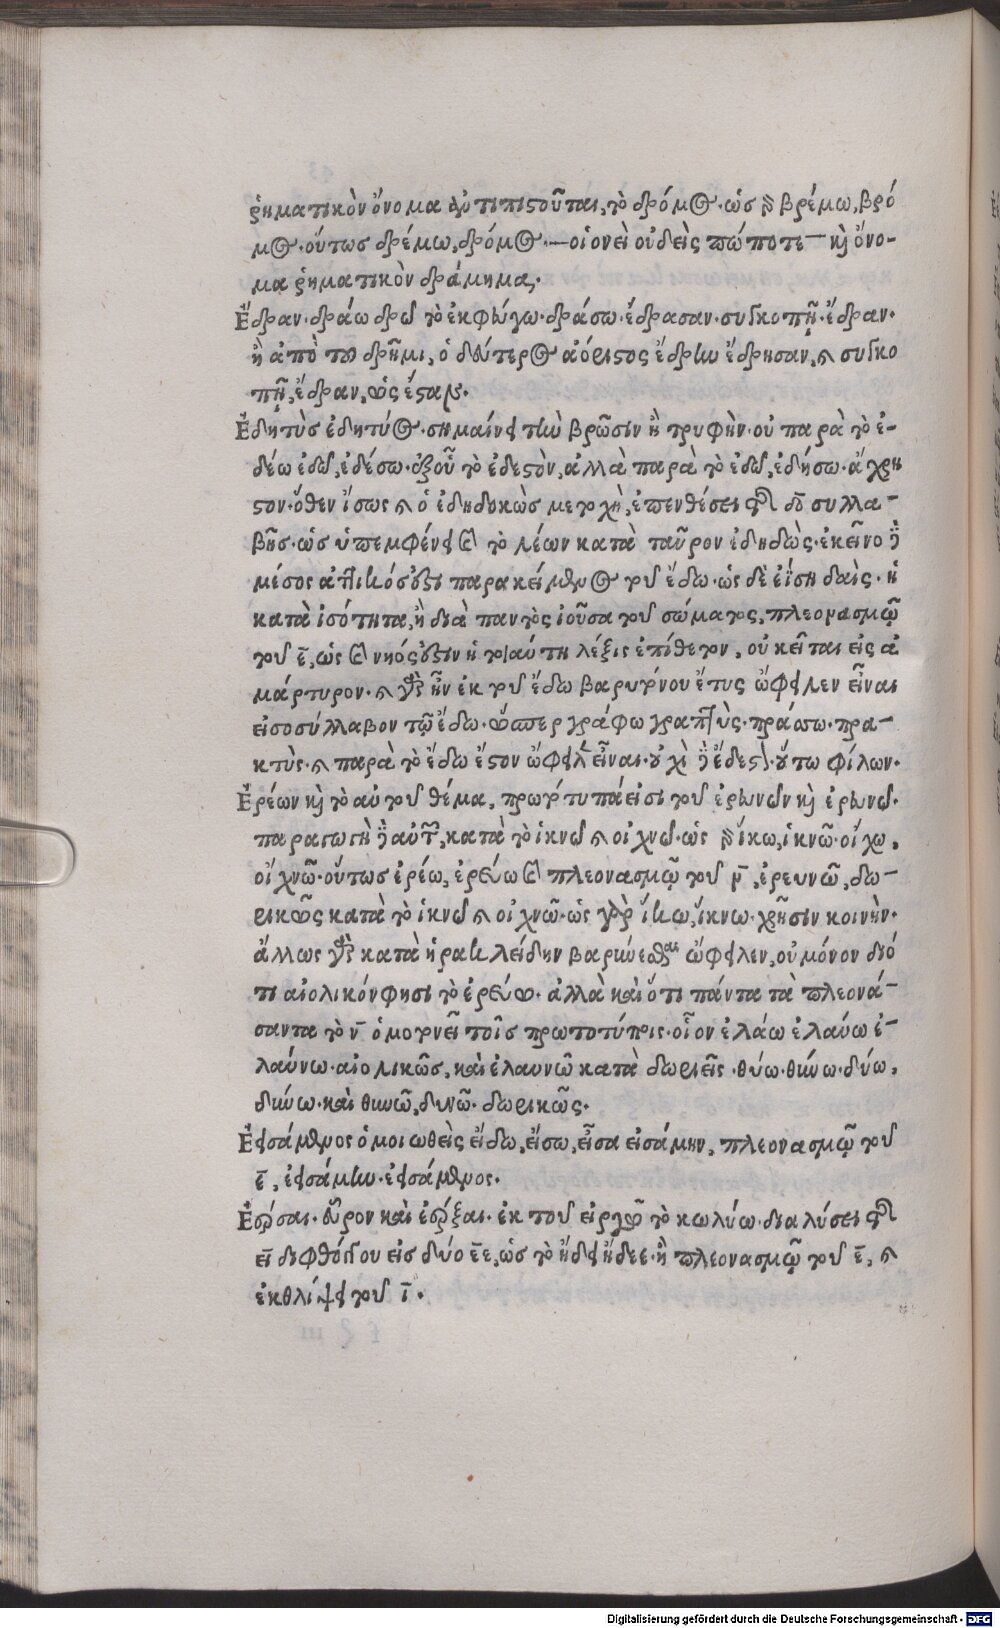 ῥηματικὸν ὄνομα ἀντιπιστοῦται, τὸ δρόμος. ὡς γὰρ βρέμω, βρό
μος. οὕτως δρέμω, δρόμος. — οἱονεὶ οὐδεὶς πώποτε — καὶ ὄνο-
μα ῥηματικὸν δράμημα.
Ἔδραν. δράω δρῶ τὸ ἐκφεύγω. δράσω. ἔδρασαν. συγκοπῇ. ἔδραν.
ἢ ἀπὸ τοῦ δρῆμι, ὁ δεύτερος ἀόριστος ἔδρην ἔδρησαν, καὶ συγκο
πῇ, ἔδραν, ὡς ἔσταν.
Ἐδητὺς ἐδητύος. σημαίνει τὴν βρῶσιν ἢ τρυφὴν. οὐ παρὰ τὸ ἐ-
δέω ἐδῶ, ἐδέσω. ἐξ οὗ τὸ ἐδεστὸν, ἀλλὰ παρὰ τὸ ἐδῶ, ἐδήσω. ἄχρη
στον. ὅθεν ἴσως καὶ ὁ ἐδηδοκὼς μετοχὴ, ἐπενθέσει τῆς δο συλλα-
βῆς. ὡς ὑπεμφαίνει καὶ τὸ λέων κατὰ ταῦρον ἐδηδὼς. ἐκεῖνο γὰρ
μέσος ἀττικός ἐστι παρακείμενος τοῦ ἔδω. ὡς δὲ ἐΐση δαὶς. ἡ
κατὰ ἰσότητα, ἢ διὰ παντὸς ἰοῦσα τοῦ σώματος, πλεονασμῷ
τοῦ ε̄, ὡς καὶ νηός ἐστιν ἡ τοιαύτη λέξις ἐπίθετον, οὐ κεῖται εἰς ἀ
μάρτυρον. καὶ γὰρ ἦν ἐκ τοῦ ἔδω βαρυτόνου ἔτυς ὤφειλεν εἶναι
εἰσοσύλλαβον τῷ ἔδω. ὥσπερ γράφω γραπτὺς. πράττω. πρα-
κτὺς. καὶ παρὰ τὸ ἔδω ἔστον ὤφειλεν εἶναι. οὐχὶ γὰρ ἔδεστον. οὕτω φίλων.
Ἐρέων καὶ τὸ αὐτοῦ θέμα, πρωτότυπά εἰσι τοῦ ἐρευνῶν καὶ ἐρευνῶ.
παραγωγὴ γὰρ αὐτῶν, κατὰ τὸ ἱκνῶ καὶ οἰχνῶ. ὡς γὰρ ἵκω, ἱκνῶ. οἴχω,
οἰχνῶ. οὕτως ἐρέω, ἐρεύω καὶ πλεονασμῷ τοῦ ν̄, ἐρευνῶ, δω-
ρικῶς κατὰ τὸ ἱκνῶ καὶ οἰχνῶ. ὡς γὰρ ἵκω, ἵκνω. χρῆσιν κοινὴν.
ἄλλως γὰρ κατὰ ἡρακλείδην βαρύνεσθαι ὤφειλεν, οὐ μόνον διό
τι αἰολικόν φησι τὸ ἐρεύω. ἀλλὰ καὶ ὅτι πάντα τὰ πλεονά-
σαντα τὸ ν̄ ὁμοτονεῖ τοῖς πρωτοτύποις. οἷον ἐλάω ἐλαύω ἐ-
λαύνω. αἰολικῶς, καὶ ἐλαυνῶ κατὰ δωριεῖς. θύω. θύνω. δύω,
δύνω. καὶ θυνῶ, δυνῶ. δωρικῶς.
Ἐεισάμενος ὁμοιωθεὶς εἴδω, εἴσω, εἶσα εἰσάμην, πλεονασμῷ τοῦ
ε̄, ἐεισάμην. ἐεισάμενος.
Ἐέρσαι. εὗρον καὶ ἐέρξαι. ἐκ τοῦ εἴργω τὸ κωλύω. διαλύσει τῆς
ει διφθόγγου εἰς δύο εε, ὡς τὸ ᾔδει ᾔδεε. ἢ πλεονασμῷ τοῦ ε̄, καὶ
ἐκθλίψει τοῦ ῑ.
Digitalisierung gefördert durch die Deutsche Forschungsgemeinschaft - DFG